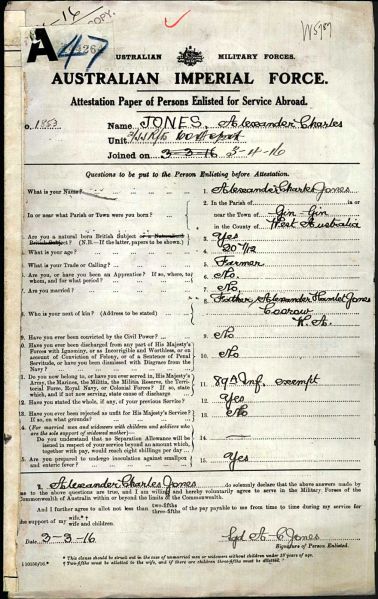 A 47
COPY.
W5787
AUSTRALIAN MILITARY FORCES.
AUSTRALIAN IMPERIAL FORCE.
Attestation Paper of Persons Enlisted for Service Abroad.
No. 1853 Name JONES, Alexander Charles
Unit Depot
Joined on 3-3-16 3-4-16
Questions to be put to the Person Enlisting before Attestation.
What is your Name? 1. Alexander Charles Jones
In or near what Parish or Town were you born? 2. In the Parish of in or
near the Town of Gin-Gin
in the County of West Australia
Are you a natural born British subject or a Naturalised 3. Yes
British Subject? (N.B.—If the latter, papers to be shown.)
What is your age? 4. 20 7/12
What is your Trade or Calling? 5. Farmer
Are you, or have you been an Apprentice? If so, where, to 6. No.
whom, and for what period?
Are you married? 7. No.
Who is your next of kin? (Address to be stated) 8. Father, Alexander Hamlet Jones
Coorow
W.A.
Have you ever been convicted by the Civil Power? 9. No
Have you ever been discharged from any part of His Majesty's 10. No.
Forces with Ignominy, or as Incorrigible and Worthless, or on
account of Conviction of Felony, or of a Sentence of Penal
Servitude, or have you been dismissed with Disgrace from the
Navy?
Do you now belong to, or have you ever served in, His Majesty's 11. 89A Inf. exempt
Army, the Marines, the Militia, the Militia Reserve, the Terri-
torial Force, Royal Navy, or Colonial Forces? If so, state
which, and if not now serving, state cause of discharge
Have you stated the whole, if any, of your previous Service? 12. Yes
Have you ever been rejected as unfit for His Majesty's Service? 13. No
If so, on what grounds?
(For married men and widowers with children and soldiers who 14. —
are the sole support of widowed mother)—
Do you understand that no Separation Allowance will be
issued in respect of your service beyond an amount which,
together with pay, would reach eight shillings per day
Are you prepared to undergo inoculation against smallpox 15. Yes
and enteric fever?
I, Alexander Charles Jones do solemnly declare that the above answers made by
me to the above questions are true, and I am willing and hereby voluntarily agree to serve in the Military Forces of the
Commonwealth of Australia within or beyond the limits of the Commonwealth.
And I further agree to allot not less than two-fifths three-fifths of the pay payable to me from time to time during my service for
the support of my wife.*† wife and children.
Date 3-3-16 Sgd A C Jones
Signature of Person Enlisted.
* This clause should be struck out in the case of unmarried men or widowers without children under 18 years of age.
† Two-fifths must be allotted to the wife, and if there are children three-fifths must be allotted.